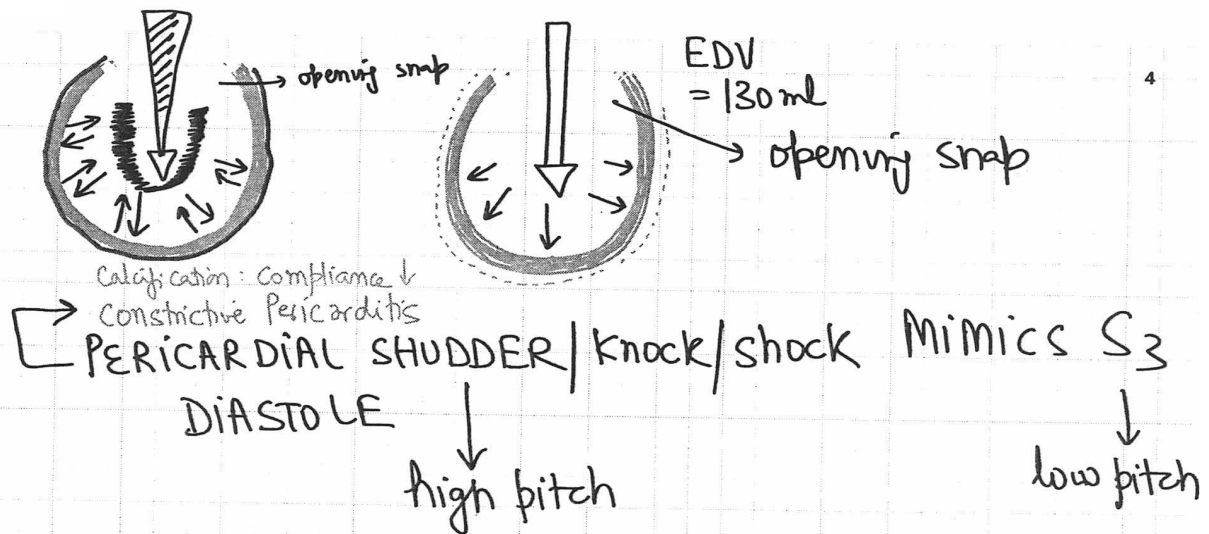 opening snap
EDV
= 130ml
4
opening snap
Calcification : Compliance ↓
Constrictive Pericarditis
PERICARDIAL SHUDDER/Knock/shock MIMICS S3
DIASTOLE
high pitch
low pitch